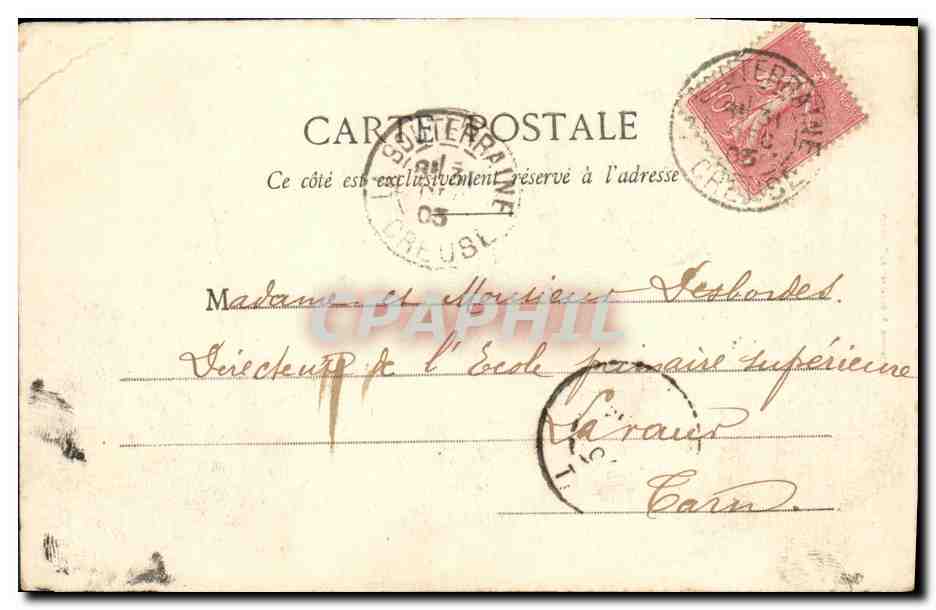 CARTE POSTALE
Ce côté est exclusivement réservé à l'adresse
LA SOUTERRAINE
31
03
CREUSE
SOUTERRAINE
31
03
CREUSE
10
Madame et Monsieur Desbordes.
Directeur de l'Ecole primaire supérieure
Lavaur
Tarn.
CPAPHIL